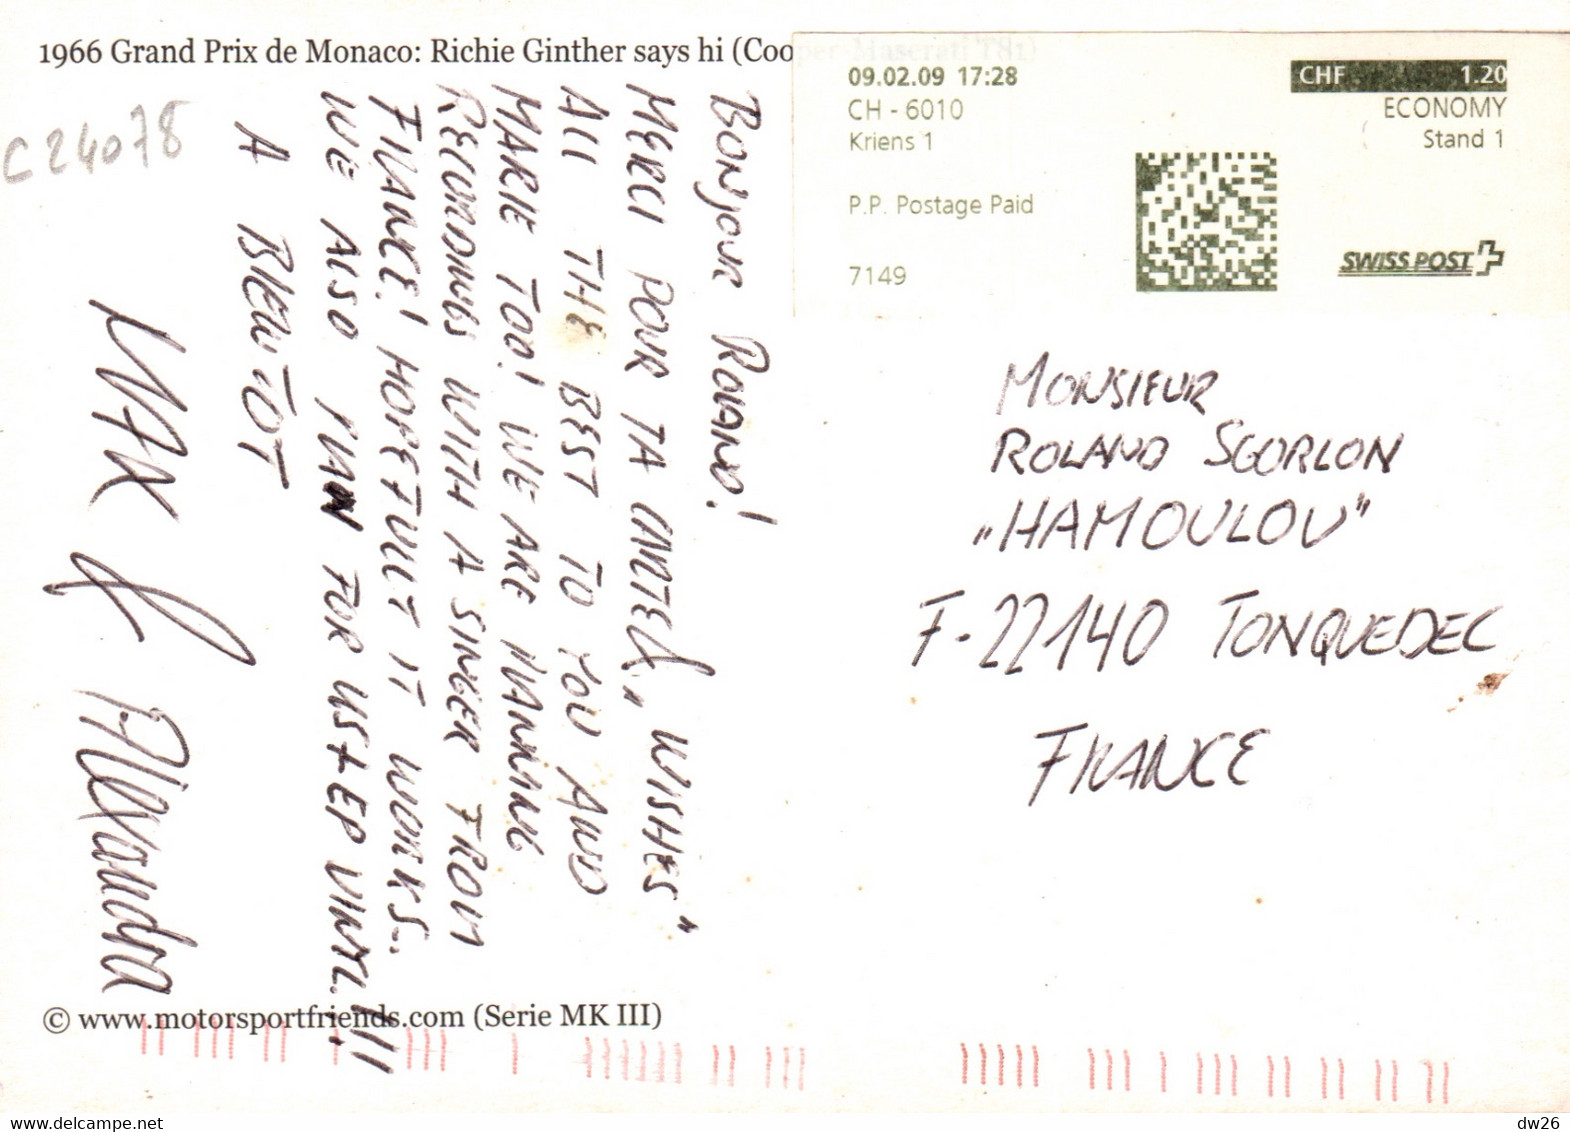 1966 Grand Prix de Monaco: Richie Ginther says hi (Cooper-Maserati T81)
09.02.09 17:28
CH - 6010
Kriens 1
P.P. Postage Paid
7149
CHF 1.20
ECONOMY
Stand 1
SWISS POST
C24078
BONJOUR ROLAND!
MERCI POUR TA CARTE & „WISHES"
ALL THE BEST TO YOU AND
MARIE TOO! WE ARE PLANNING
RECORDINGS WITH A SINGER FROM
FRANCE! HOPEFULLY IT WORKS...
WE ALSO PLAN FOR US + EP VINYL!!!
A BIENTÔT
MAX & Alexandra
MONSIEUR
ROLAND SGORLON
„HAMOULOU"
F-22140 TONQUEDEC
FRANCE
© www.motorsportfriends.com (Serie MK III)
www.delcampe.net
dw26